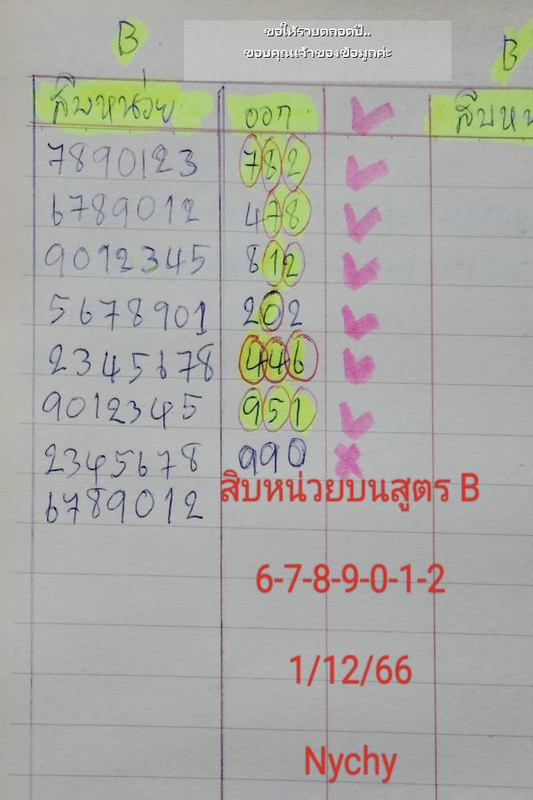 ขอให้รวยตลอดปี..
ขอบคุณเจ้าของข้อมูลค่ะ
B
B
สิบหน่วย ออก ✓ สิบห
7890123 782 ✓
6789012 478 ✓
9012345 812 ✓
5678901 202 ✓
2345678 446 ✓
9012345 951 ✓
2345678 990 ✗
6789012
สิบหน่วยบนสูตร B
6-7-8-9-0-1-2
1/12/66
Nychy